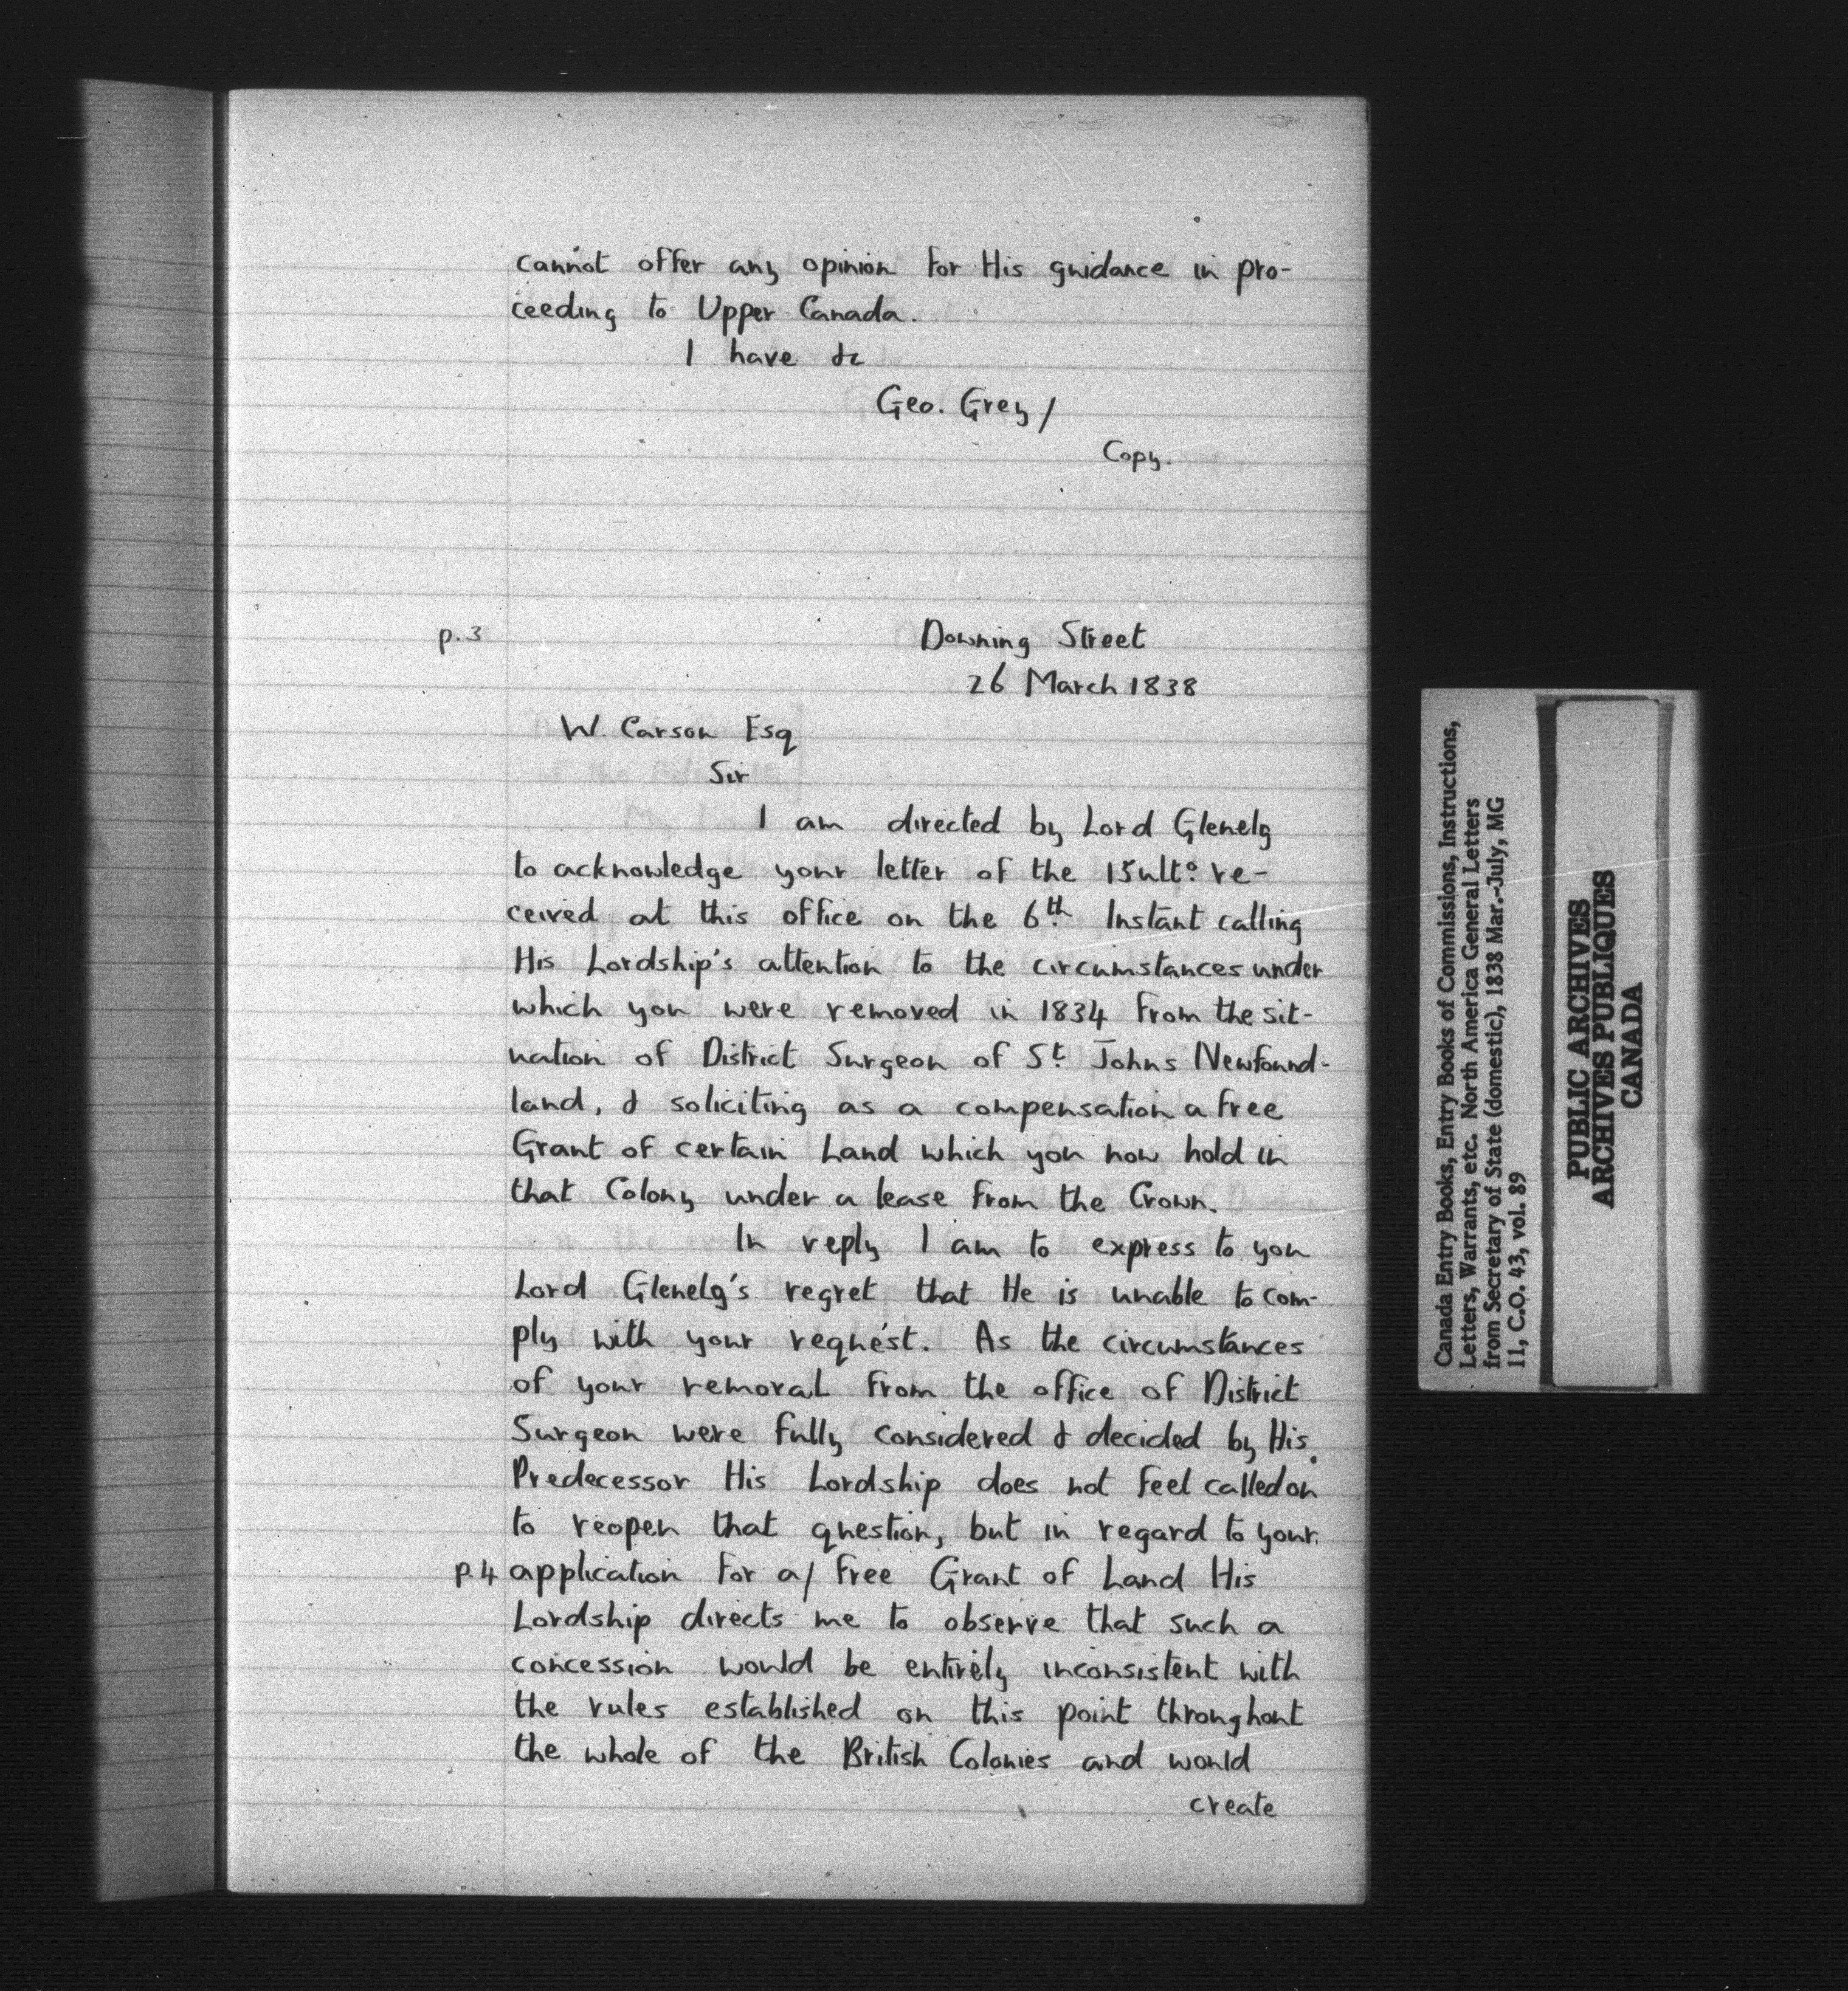 cannot offer any opinion for His guidance in pro-
ceeding to Upper Canada.
I have &c
Geo. Grey /
Copy.
p. 3
Downing Street
26 March 1838
W. Carson Esq
Sir
I am directed by Lord Glenelg
to acknowledge your letter of the 15 ulto. re-
ceived at this office on the 6th. Instant calling
His Lordship's attention to the circumstances under
which you were removed in 1834 from the sit-
uation of District Surgeon of St. Johns Newfound-
land, & soliciting as a compensation a free
Grant of certain Land which you now hold in
that Colony under a lease from the Crown.
In reply I am to express to you
Lord Glenelg's regret that He is unable to com-
ply with your request. As the circumstances
of your removal from the office of District
Surgeon were fully considered & decided by His
Predecessor His Lordship does not feel called on
to reopen that question, but in regard to your
p. 4 application for a / free Grant of Land His
Lordship directs me to observe that such a
concession would be entirely inconsistent with
the rules established on this point throughout
the whole of the British Colonies and would
create
Canada Entry Books, Entry Books of Commissions, Instructions,
Letters, Warrants, etc. North America General Letters
from Secretary of State (domestic), 1838 Mar.-July, MG
11, C.O. 43, vol. 89
PUBLIC ARCHIVES
ARCHIVES PUBLIQUES
CANADA